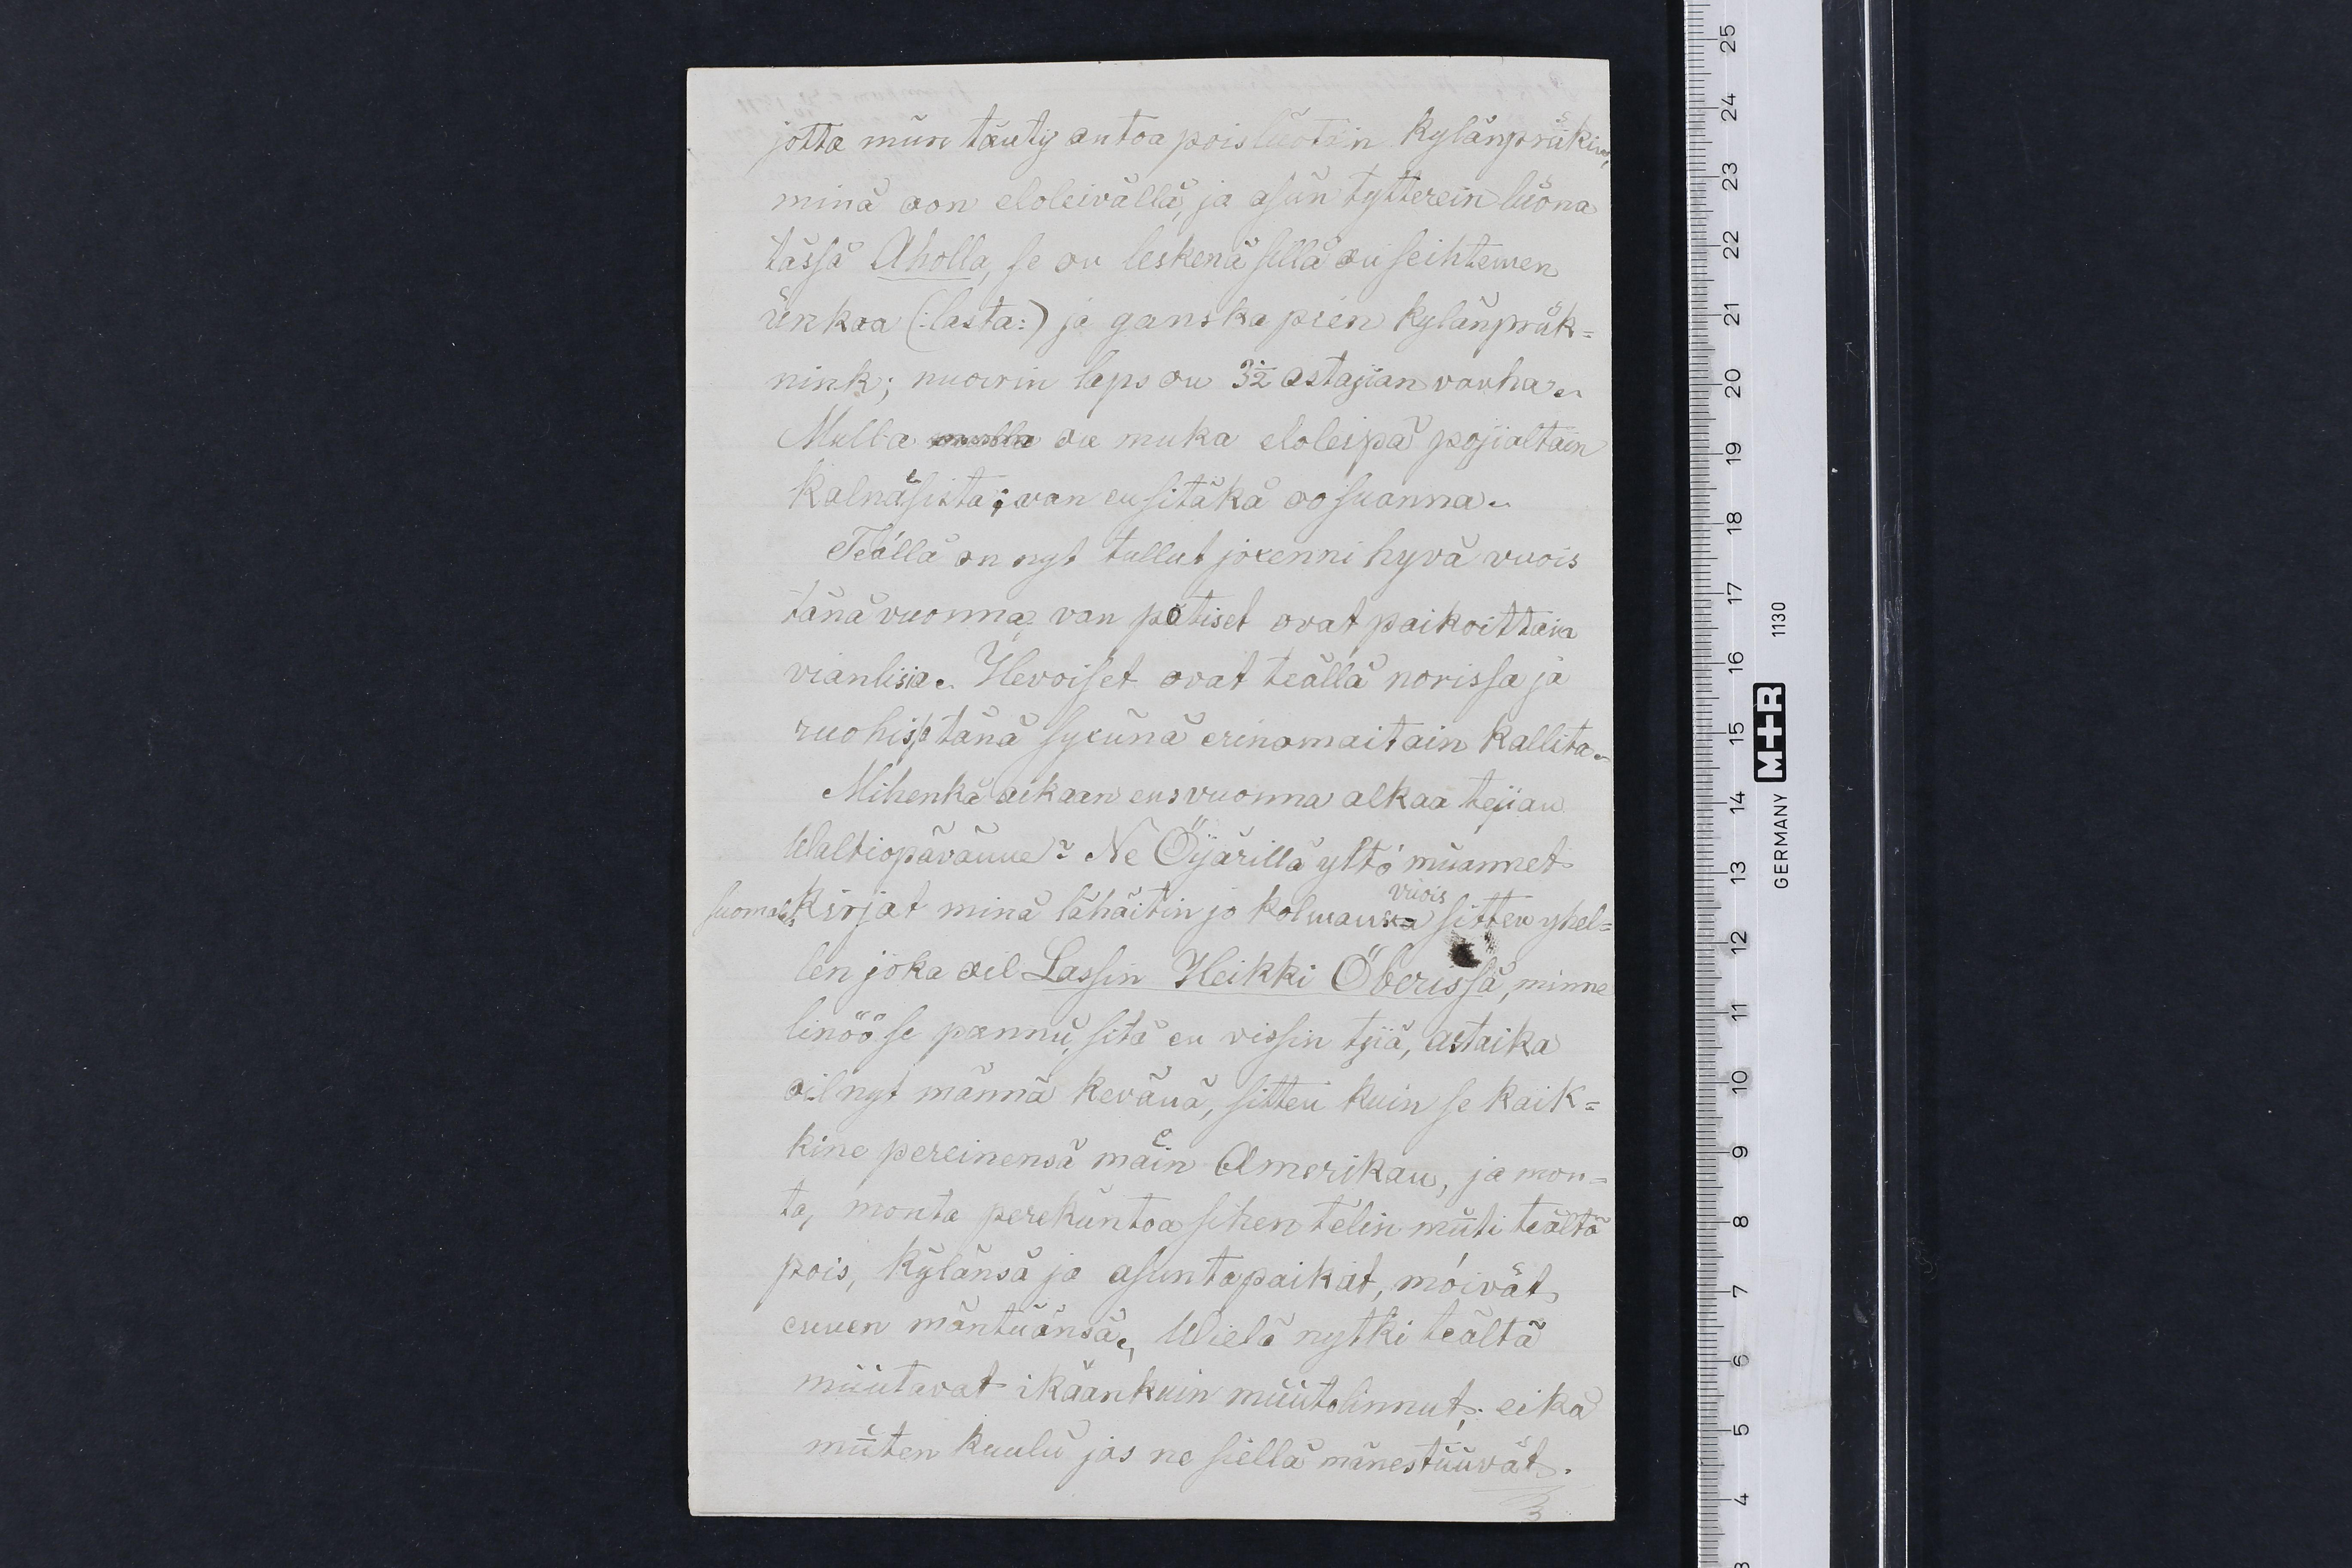 jotta mün täuty antoa pois luotain kylänpräkin,
minä oon eloleivällä, ja asun tytterein luöna
tässä Aholla, se on leskenä sillä on seihtemen
ünkoa (:lasta:) ja ganska pien kylänpräk=
nink; nuorin laps on 3½ astajian vanha.
Mulla on muka eloleipä pojialtain
Kalnäsista; van en sitäkä oo suanna.
Teällä on nyt tullut jocenni hyvä vuois
tänä vuonna, van potiset ovat paikoittain
vianlisia. Hevoiset ovat teällä norissa ja
ruohissa tänä sycünä erinomaitain kallita.
Mihenkä aikaan ensvuonna alkaa tejian
Waltiopävänne? Ne Öijärillä yltö müannet
suomal: kirjat minä lähäitin jo kolmanna vuois sitten yhel=
len joka oil Lassin Heikki Öberissä, minne
linöö se pannu, sitä en vissin tiiä, astaika
oil nyt männä keväna, sitten kuin se kaik=
kine pereinensä mäin Amerikan, ja mon=
ta, monta perekuntoa sihen telin müti teältä
pois, kylänsä ja asuntapaikat, möivät
ennen mäntüänsä. Wielä nytki teältä
müütavat ikäänkuin müütolinnut; eikä
müten kuulu jos ne siellä mänestüüvät.
3
25
24
23
22
21
20
19
18
17
16
15
14
13
12
11
10
9
8
7
6
5
4
3
GERMANY M+R 1130